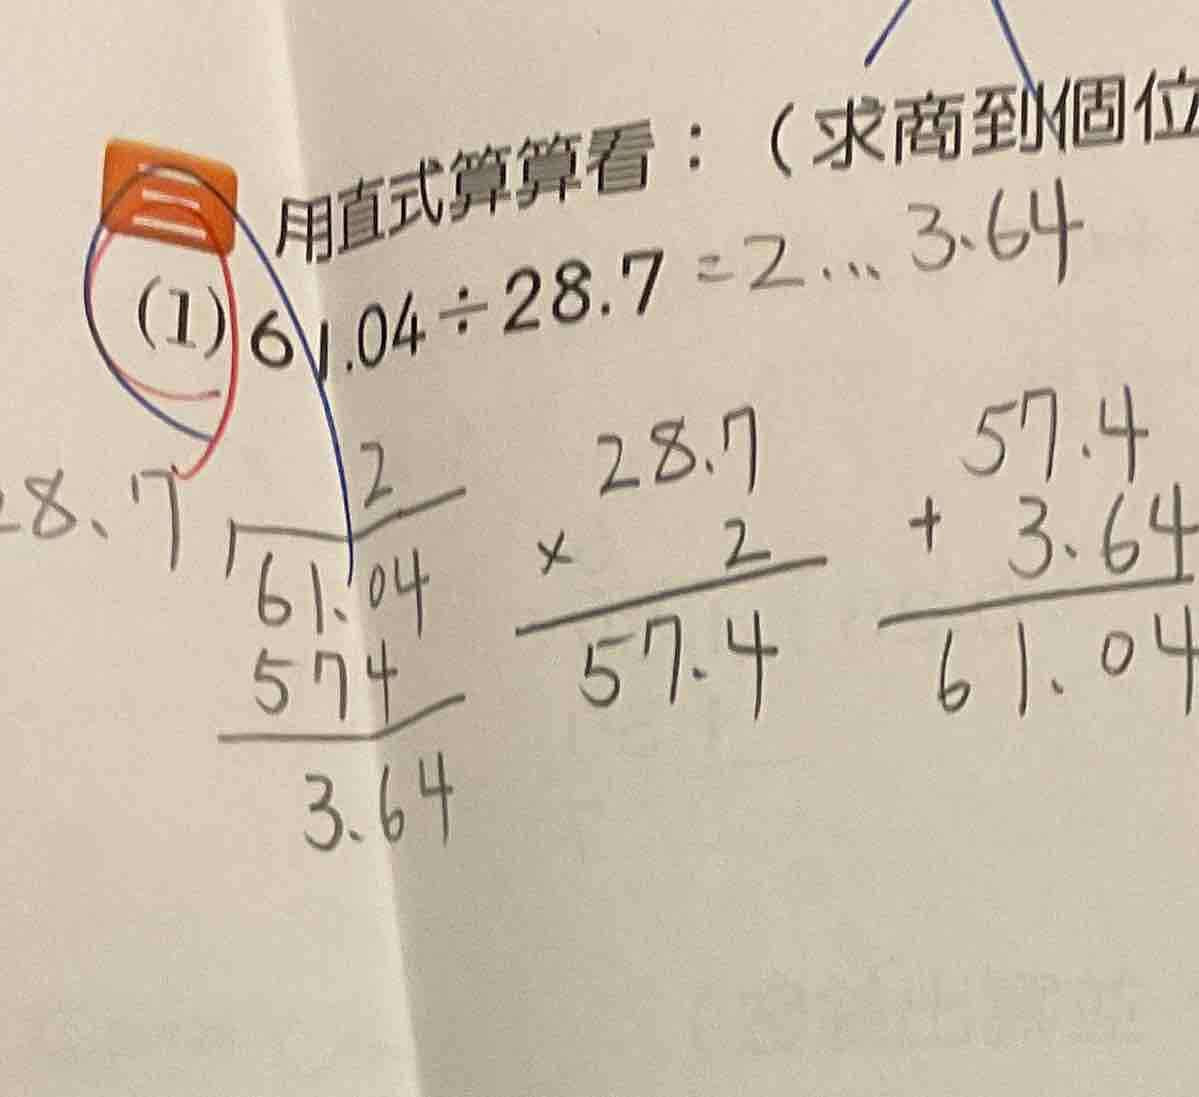 三
用直式算算看：（求商到個位
(1) 61.04÷28.7 =2...3.64
2
28.7
57.4
8.7
61.04
× 2
+ 3.64
574
57.4
61.04
3.64